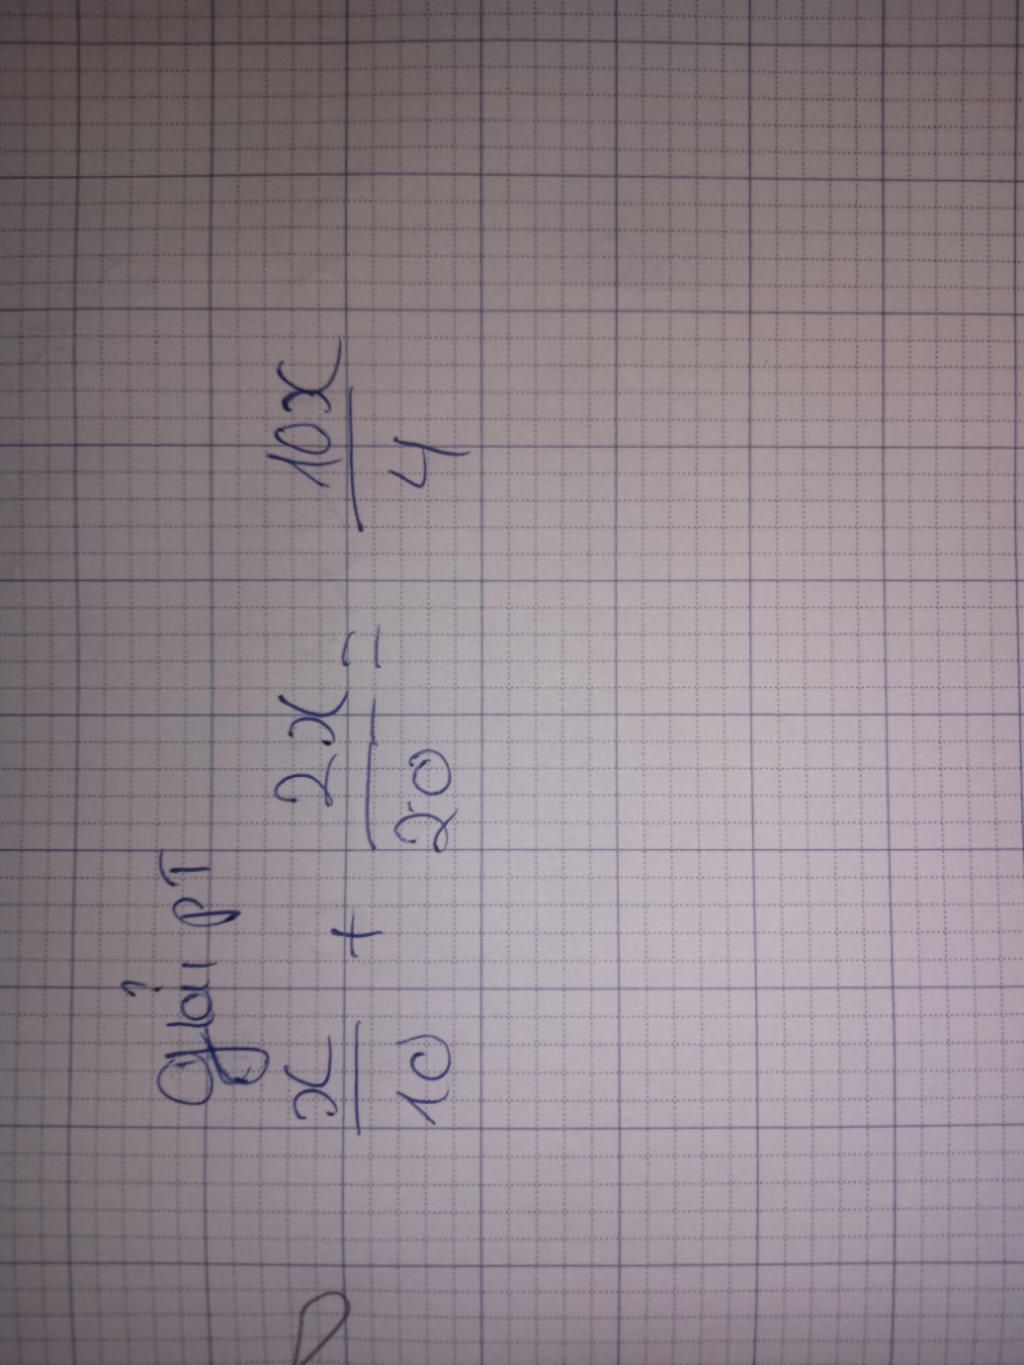 giải pT
x/10 + 2x/20 = 10x/4